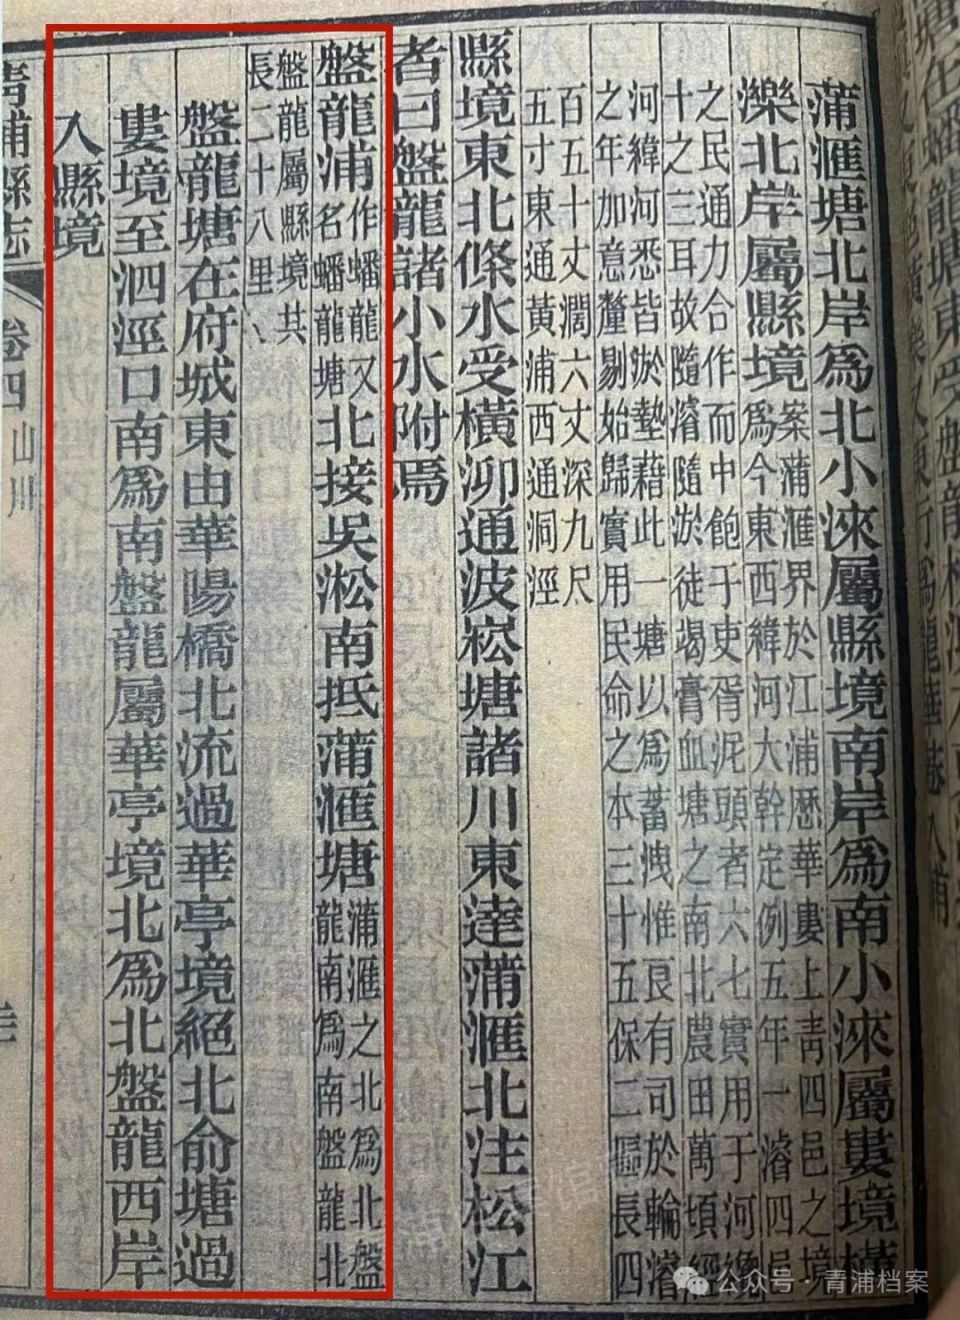 蒲滙塘北岸爲北小淶屬縣境南岸爲南小淶屬婁境橫
濼北岸屬縣境案蒲滙界於江浦歷華婁上靑四邑之境
爲今東西緯河大幹定例五年一濬四邑
之民通力合作而中飽于吏胥泥頭者六七實用于河纔
十之三耳故隨濬隨淤徒竭膏血塘之南北農田萬頃經
河緯河悉皆淤墊藉此一塘以爲蓄洩惟良有司於輪濬
之年加意釐剔始歸實用民命之本三十五保二區長四
百五十丈濶六丈深九尺
五寸東通黃浦西通洞涇
縣境東北條水受橫泖通波崧塘諸川東達蒲滙北注松江
者曰盤龍諸小水附焉
盤龍浦作蟠龍又名蟠龍塘北接吳淞南抵蒲滙塘蒲滙之北爲北盤龍南爲南盤龍北
盤龍屬縣境共
長二十八里
盤龍塘在府城東由華陽橋北流過華亭境絕北俞塘過
婁境至泗涇口南爲南盤龍屬華亭境北爲北盤龍西岸
入縣境
靑浦縣志 卷四 山川
公众号·青浦档案